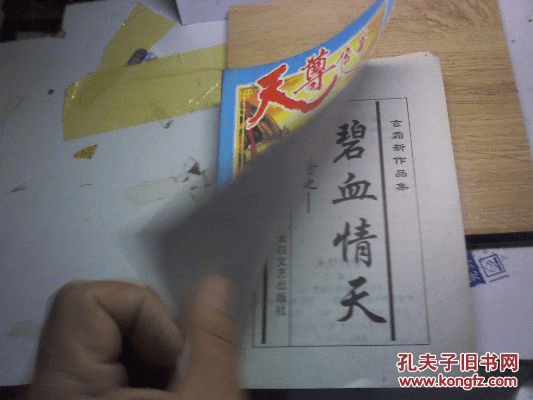 天尊
玄霜新作品集
碧血情天
之一
太白文艺出版社
孔夫子旧书网
www.kongfz.com